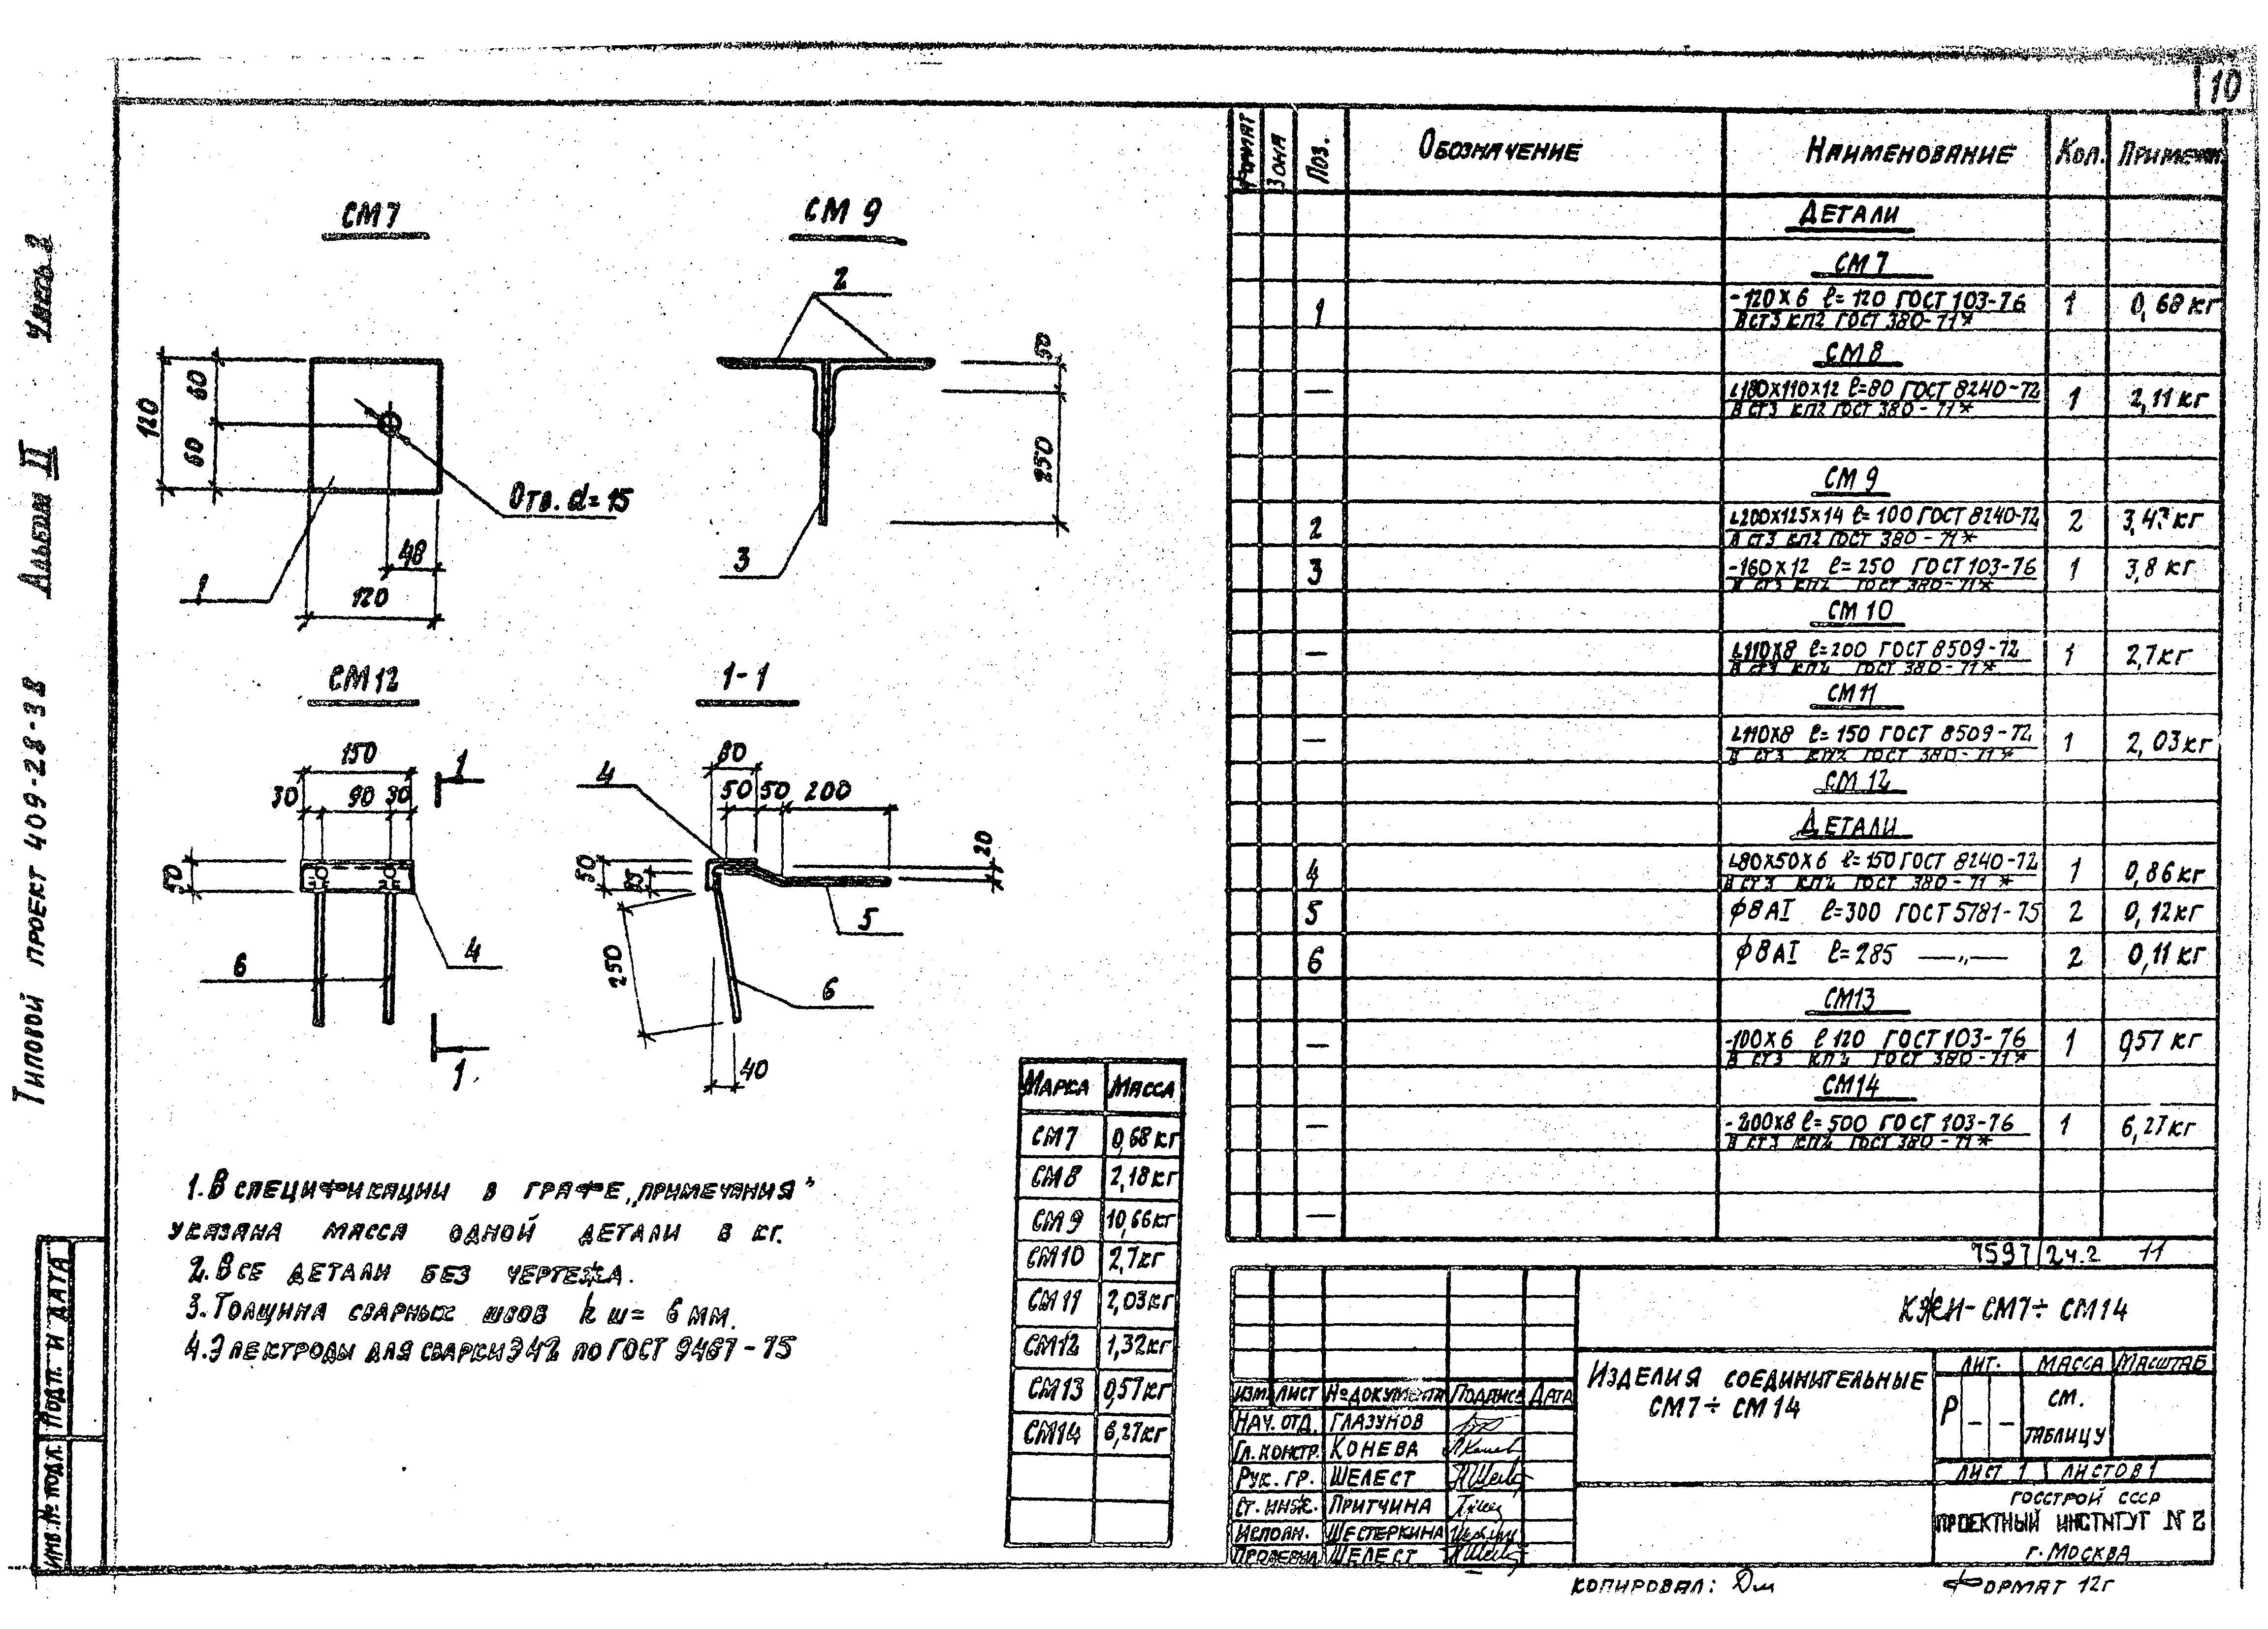 10
Типовой проект 409-28-38 Альбом II Часть 2
СМ7
120
60
60
Отв. d=15
48
120
1
СМ 9
2
50
250
3
СМ12
150
30 90 30
50
1
6
4
1
1-1
4
80
50 50 200
20
50
250
5
6
40
1. В спецификации в графе „Примечания"
указана масса одной детали в кг.
2. Все детали без чертежа.
3. Толщина сварных швов h ш= 6 мм.
4. Электроды для сварки Э42 по ГОСТ 9467-75
Марка Масса
СМ7 0,68 кг
СМ8 2,18 кг
СМ9 10,66 кг
СМ10 2,7 кг
СМ11 2,03 кг
СМ12 1,32 кг
СМ13 0,57 кг
СМ14 6,27 кг
Формат Зона Поз. Обозначение Наименование Кол. Примечан
Детали
СМ 7
1 -120×6 ℓ=120 ГОСТ 103-76 1 0,68 кг
В СТ3 КП2 ГОСТ 380-71*
СМ 8
— L180×110×12 ℓ=80 ГОСТ 8240-72 1 2,11 кг
В СТ3 КП2 ГОСТ 380-71*
СМ 9
2 L200×125×14 ℓ=100 ГОСТ 8240-72 2 3,43 кг
В СТ3 КП2 ГОСТ 380-71*
3 -160×12 ℓ=250 ГОСТ 103-76 1 3,8 кг
В СТ3 КП2 ГОСТ 380-71*
СМ 10
— L110×8 ℓ=200 ГОСТ 8509-72 1 2,7 кг
В СТ3 КП2 ГОСТ 380-71*
СМ 11
— L110×8 ℓ=150 ГОСТ 8509-72 1 2,03 кг
В СТ3 КП2 ГОСТ 380-71*
СМ 12
Детали
4 L80×50×6 ℓ=150 ГОСТ 8240-72 1 0,86 кг
В СТ3 КП2 ГОСТ 380-71*
5 ϕ8АI ℓ=300 ГОСТ 5781-75 2 0,12 кг
6 ϕ8АI ℓ=285 —„— 2 0,11 кг
СМ13
— -100×6 ℓ 120 ГОСТ 103-76 1 0,57 кг
В СТ3 КП2 ГОСТ 380-71*
СМ14
— -200×8 ℓ=500 ГОСТ 103-76 1 6,27 кг
В СТ3 КП2 ГОСТ 380-71*
—
7597/2ч.2 11
КЖИ-СМ7÷СМ14
Изделия соединительные
СМ7÷СМ14
Лит. Масса Масштаб
Р – – См. таблицу
Лист 1 Листов 1
Госстрой СССР
Проектный институт №2
г. Москва
Изм. Лист №документа Подпись Дата
Нач. отд. Глазунов
Гл. констр. Конева
Рук. гр. Шелест
Ст. инж. Притчина
Исполн. Шестеркина
Проверил Шелест
Инв. № подл. Подп. и дата
Копировал: Формат 12г